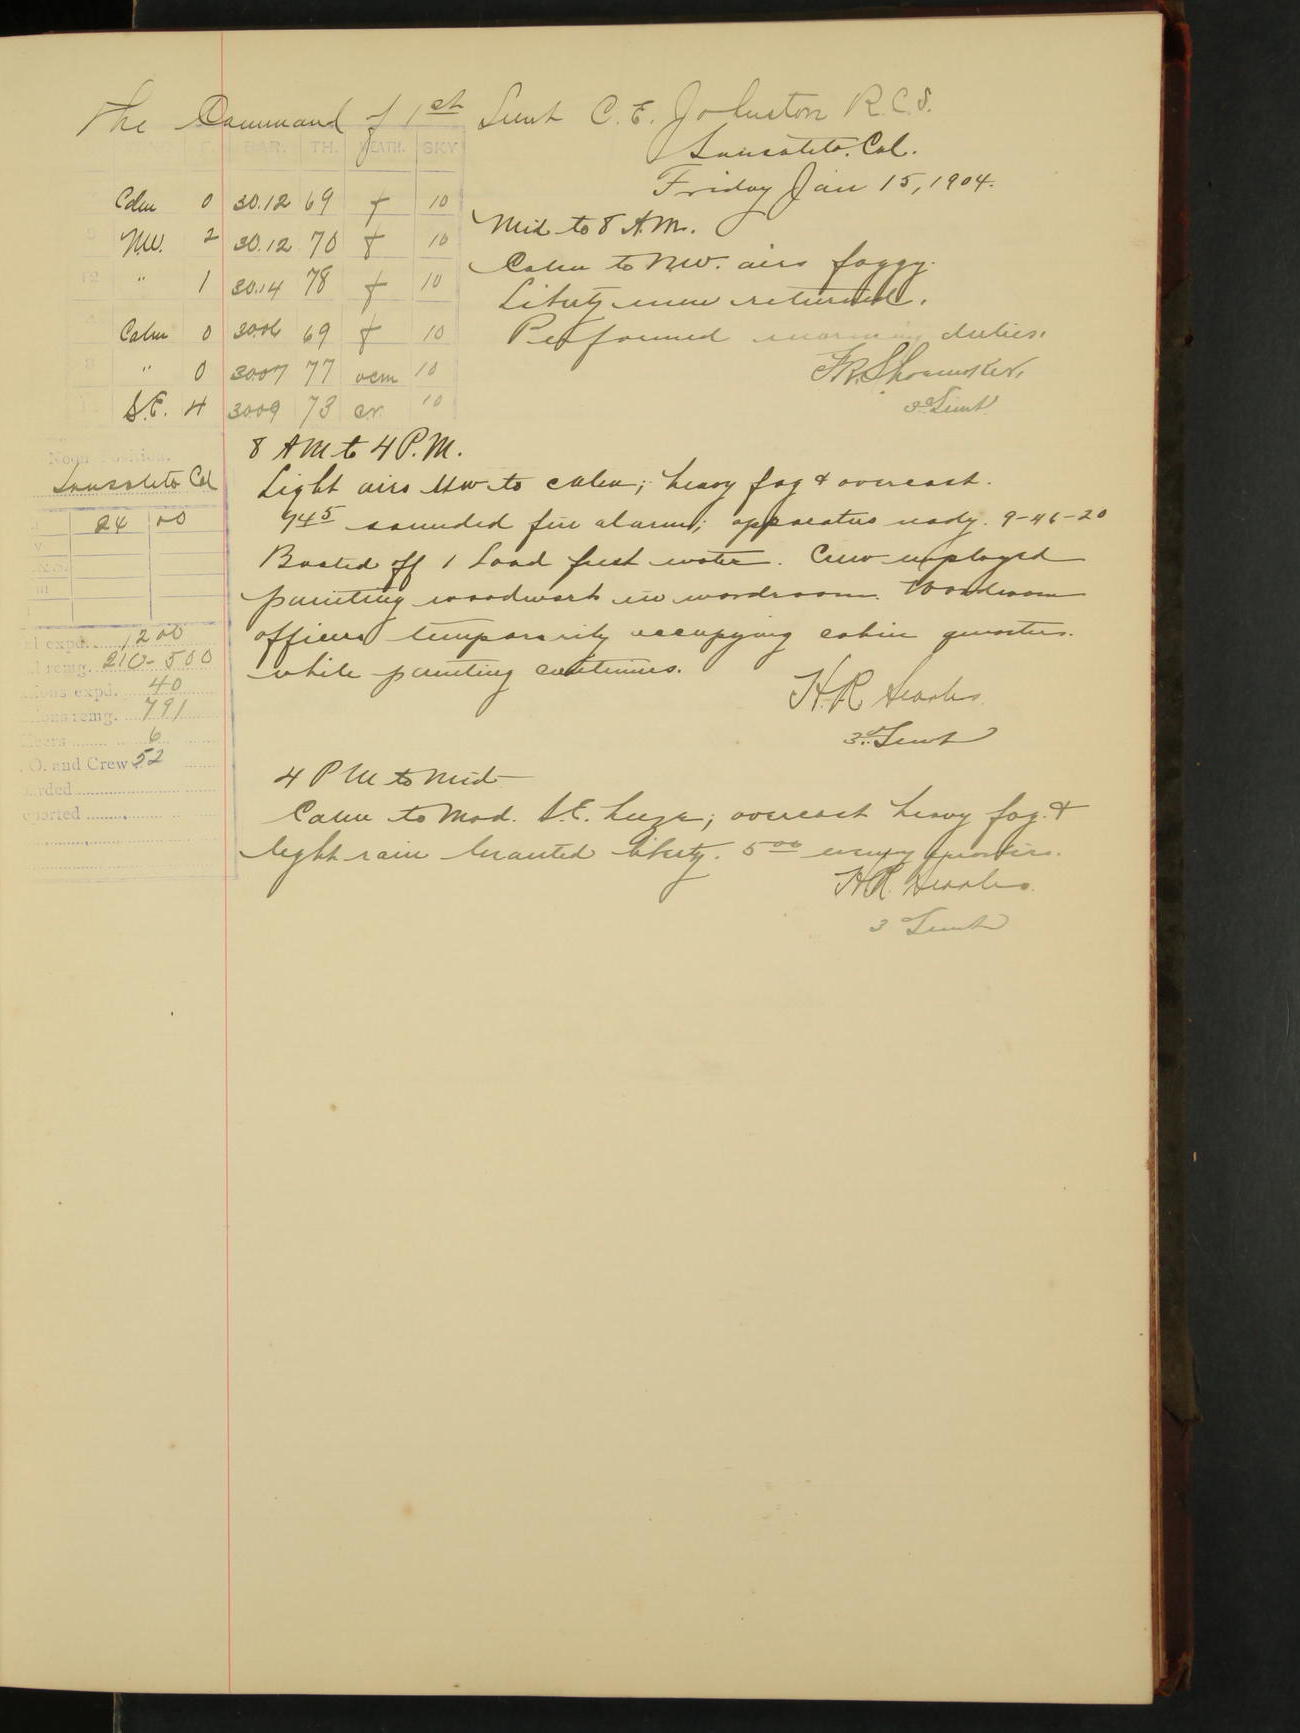 The Command of 1st Lieut C. E. Johnston R.C.S.
Sausalito, Cal.
Friday Jan 15, 1904.
F. BAR. TH. WEATH. SKY
Calm 0 30.12 69 f 10
NW. 2 30.12 70 f 10
12 " 1 30.14 78 f 10
Calm 0 3006 69 f 10
8 " 0 3007 77 ocm 10
S.E. 4 3009 73 or 10
Mid to 8 A.M.
Calm to NW. airs foggy.
Liberty men returned.
Performed morning duties.
F.R. Shoemaker,
3d Lieut.
Noon Position.
Sausalito Cal
24 00
l expd. 1200
l remg. 210-500
ions expd. 40
ions remg. 791
icers 6
.O. and Crew 52
arded
ported
8 AM to 4 P.M.
Light airs NW to calm; heavy fog & overcast.
945 sounded fire alarm; apparatus ready. 9-46-20
Boated off 1 Load fresh water. Crew employed
painting woodwork in wardroom. Wardroom
officers temporarily occupying cabin quarters.
while painting continues.
H.R. Searles.
3d. Lieut
4 PM to Mid
Calm to Mod. S.E. breeze; overcast heavy fog. &
light rain Granted liberty. 500 evening quarters.
H.R. Searles.
3d Lieut